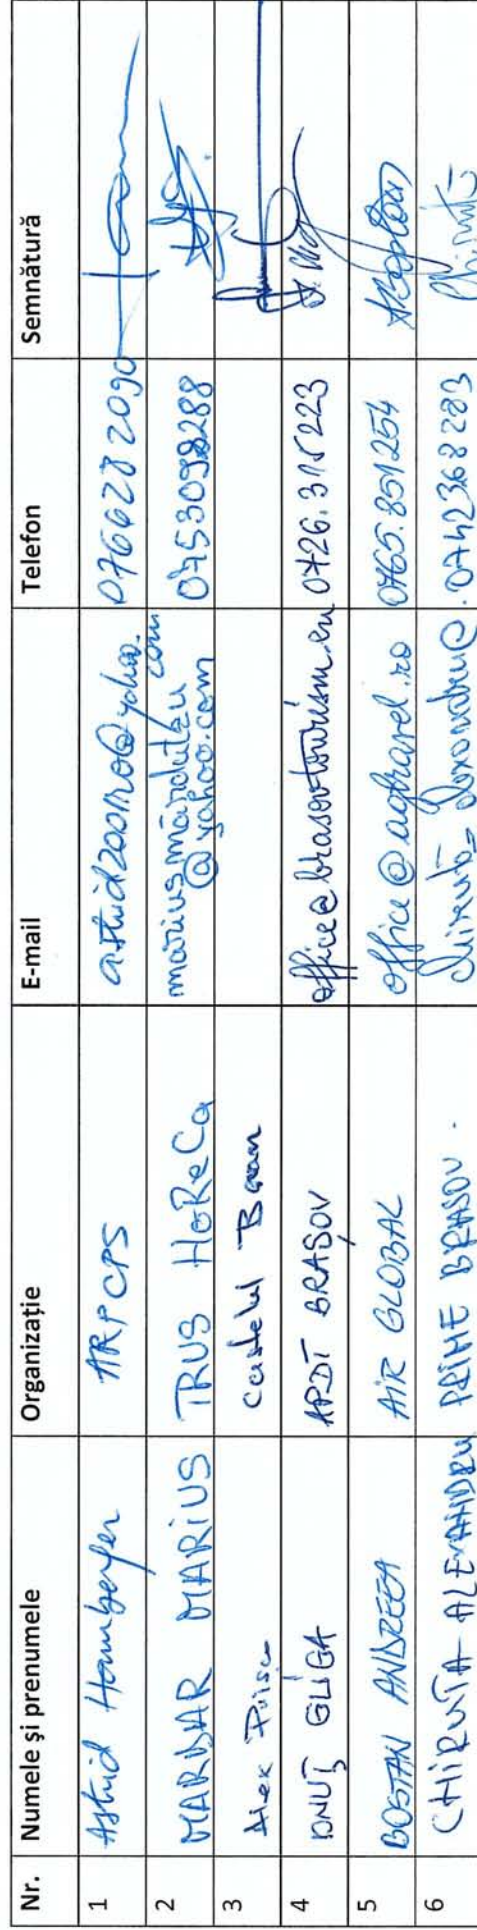 Nr. Numele și prenumele Organizație E-mail Telefon Semnătură
1 Astrid Hamberger ARPCPS astrid2001ro@yahoo.com 0766282090
2 MARDAR MARIUS TRUS HoReCa mariusmardutzu@yahoo.com
3 Alex Castelul Bran
4 IONUȚ GLIGA APDT BRAȘOV office@brasovtourism.eu 0726.315223
5 BOSTAN ANDREEA AIR GLOBAL office@agtravel.ro 0765.851254
6 CHIRUTA ALEXANDRU PRIME BRASOV. 0742368283